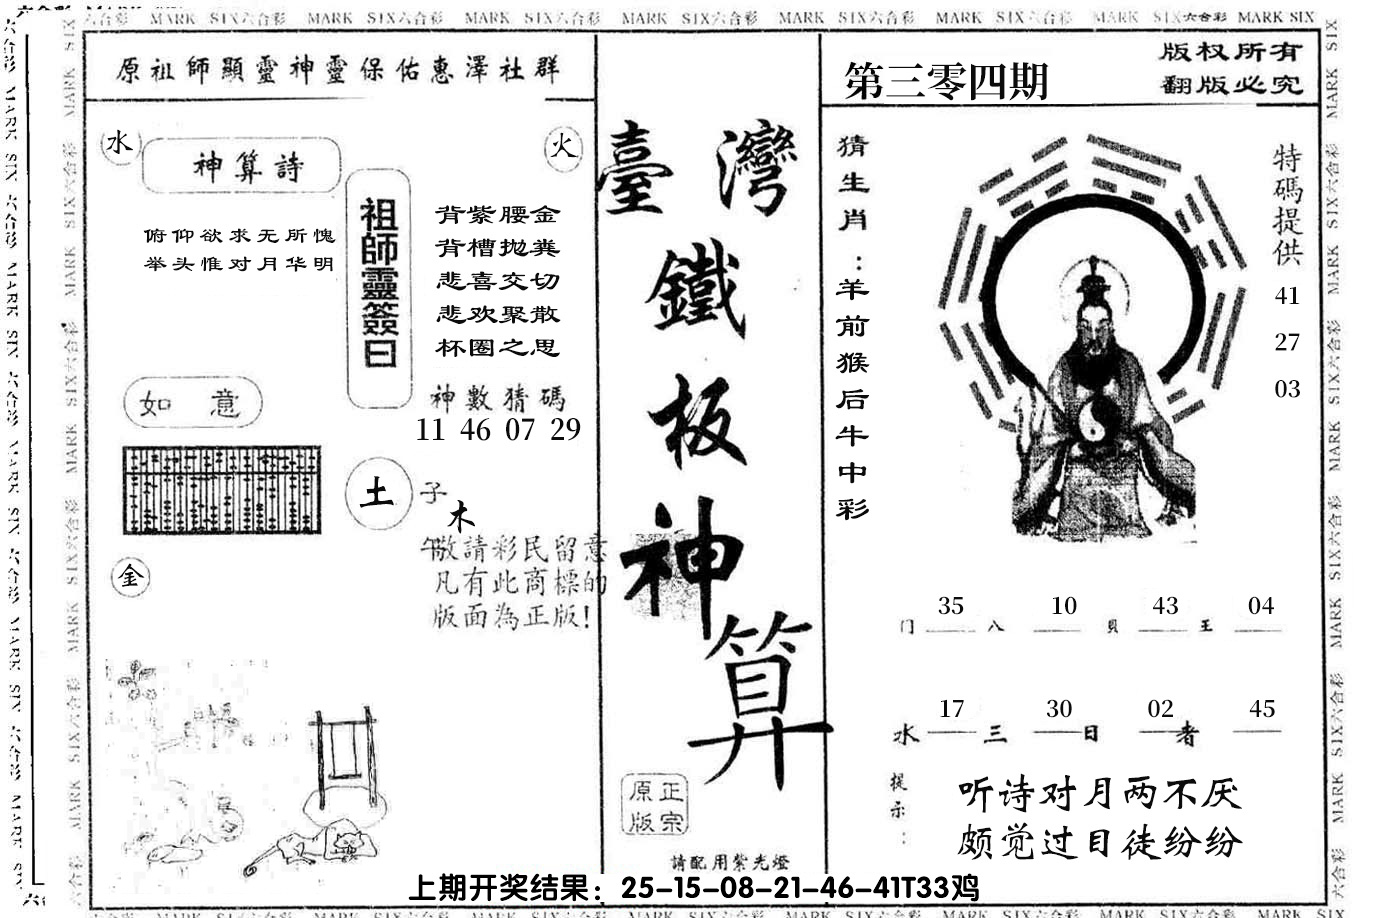 MARK SIX六合彩 MARK SIX六合彩 MARK SIX六合彩 MARK SIX六合彩 MARK SIX六合彩 MARK SIX六合彩 MARK SIX六合彩 MARK SIX
原祖師顯靈神靈保佑惠澤社群
水
神算詩
火
俯仰欲求无所愧
举头惟对月华明
祖師靈簽曰
背紫腰金
背槽抛粪
悲喜交切
悲欢聚散
杯圈之思
神數猜碼
11 46 07 29
如意
土
子
木
午
金
敬請彩民留意
凡有此商標的
版面為正版!
臺灣
鐵
板
神
算
正宗
原版
請配用紫光燈
第三零四期
版权所有
翻版必究
猜生肖:羊前猴后牛中彩
特碼提供
41
27
03
35 10 43 04
门 八 贝 王
17 30 02 45
水 三 日 者
提示:
听诗对月两不厌
颇觉过目徒纷纷
上期开奖结果：25-15-08-21-46-41T33鸡